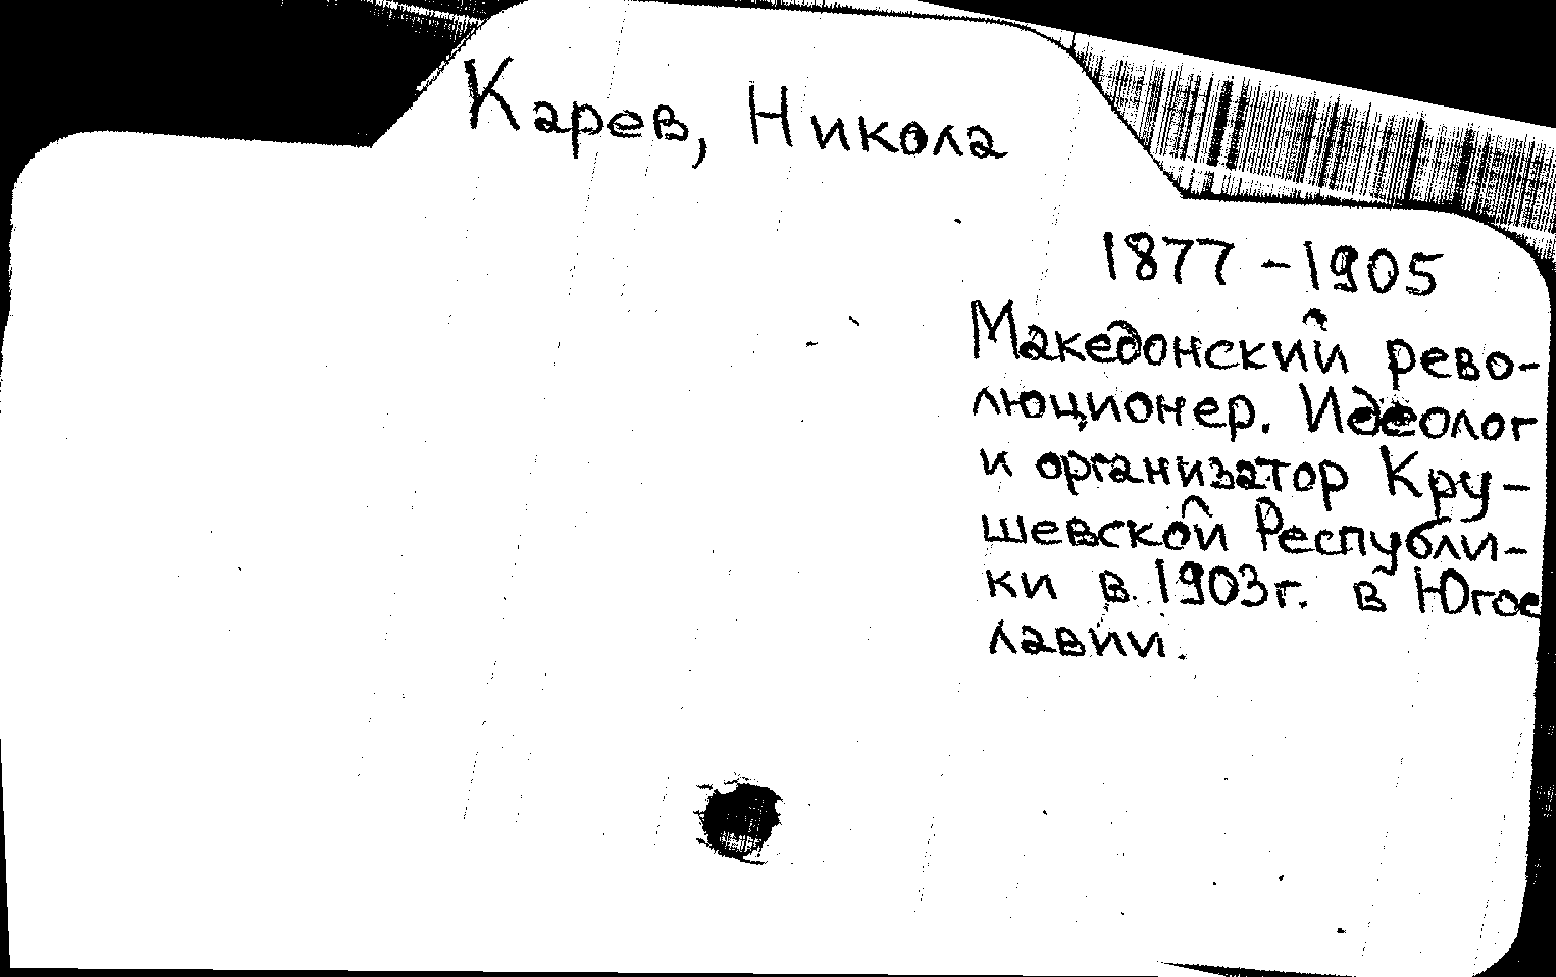 Карев, Никола
1877-1905
Македонский рево-
люционер. Идеолог
и организатор Кру-
шевской Республи-
ки в 1903г. в Югос
лавии.